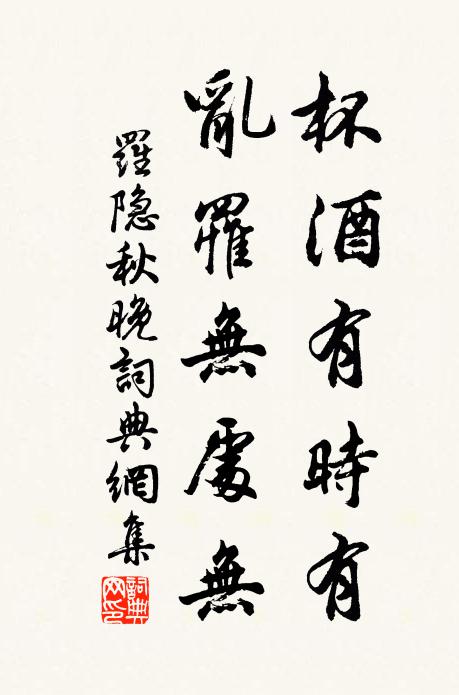 杯酒有時有
亂罹無處無
羅隐秋晚詞典網集
詞典网印